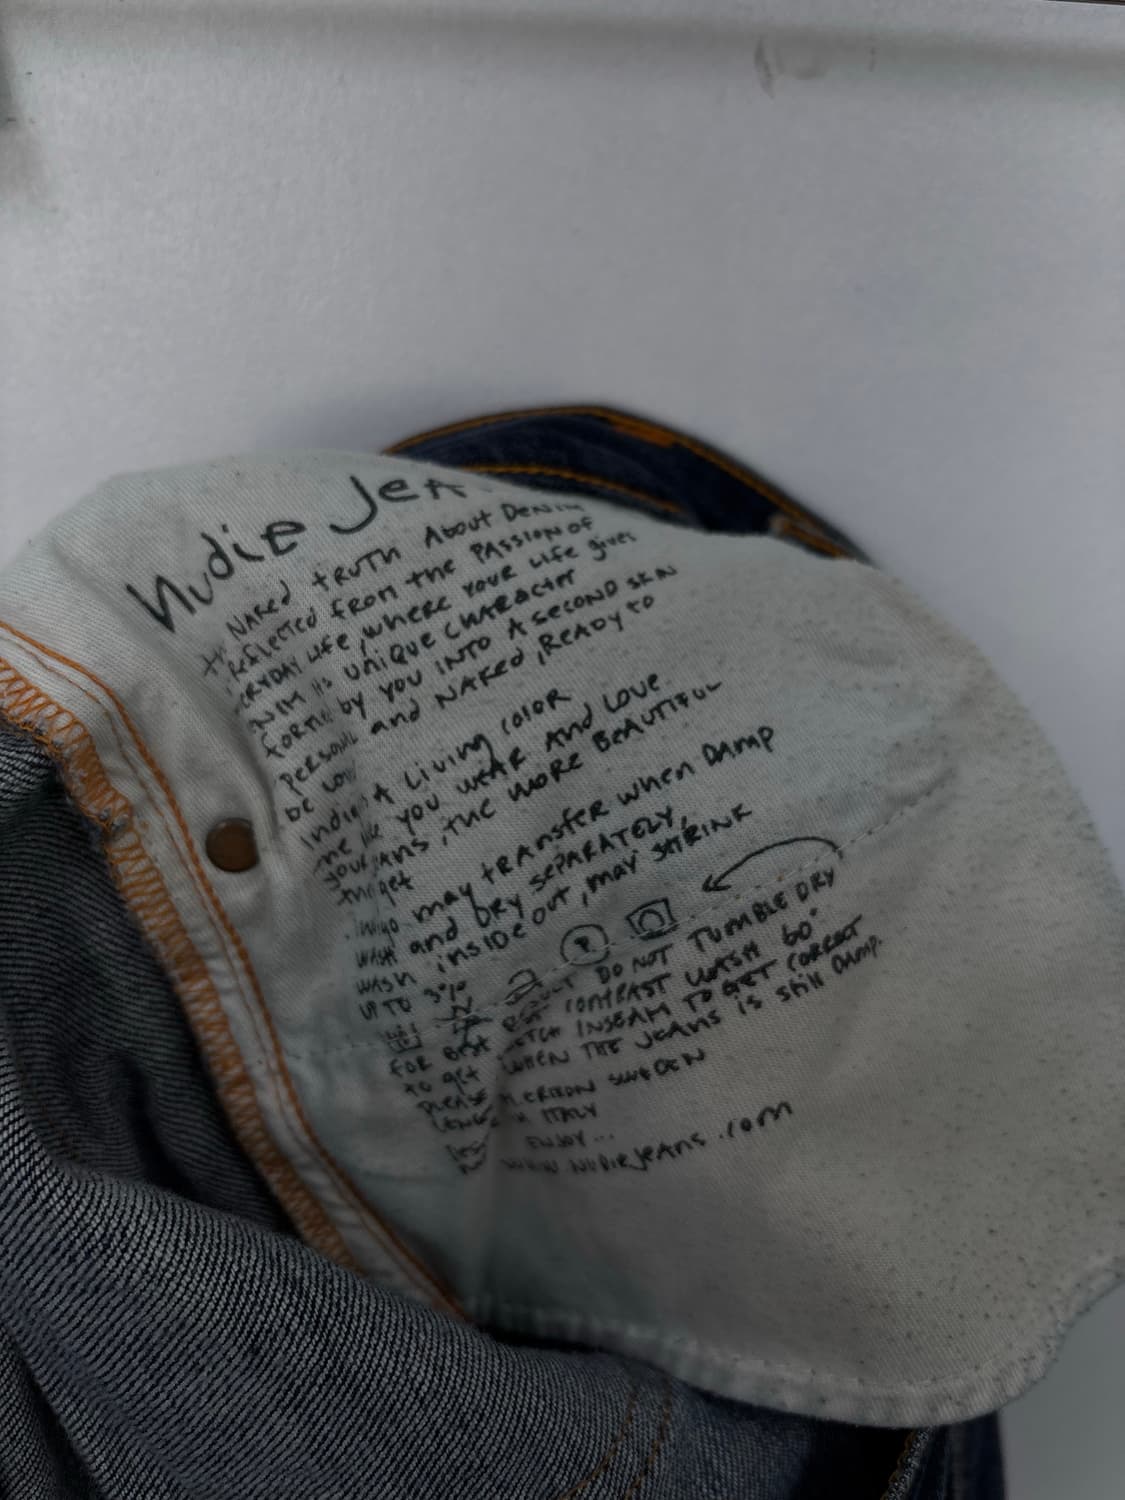 Nudie Jea
the NAKed tRUTH About Denim
Reflected from the PASSION of
ERYDAY Life, where YOUR Life gives
NIM its UNIQUE CHARACter
forme by YOU INTO A SECOND SKIN
Personal and NAKED, READY to
be
Indigo A Living COLOR
YOU WEAR AND LOVE
YOUR JeANS, THE MORE BEAUTIFUL
they get
Indigo may tRANSfer when DAMP
WASH and DRY SEPARATELY,
WASH inside out, may SHRINK
UP TO 3%
FOR BEST RESULT DO NOT TUMBLE DRY
to get CONTRAST WASH 60°
PLEASE INSEAM TO GET CORRECT
LENG WHEN THE JEANS is still DAMP.
SWEDEN
ITALY
ENJOY...
WWW.NUDIEJEANS.COM